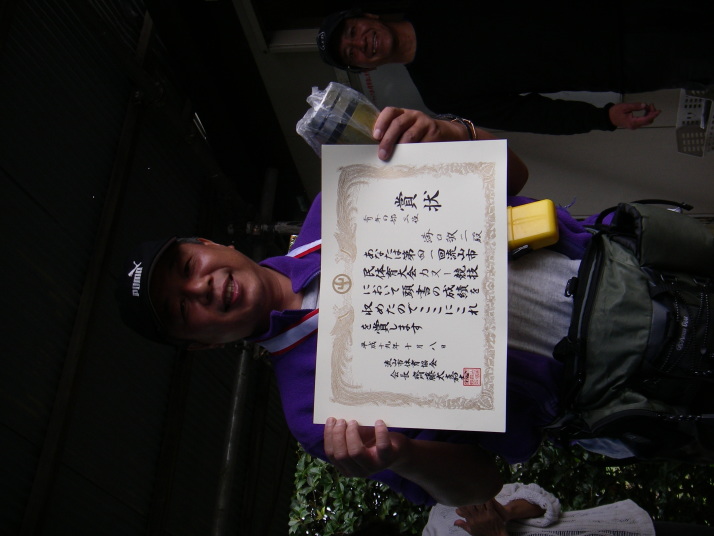 賞状
青年口部 三位
溝口敬二殿
あなたは第四一回流山市
民体育大会カヌー競技
において頭書の成績を
収めたのでここにこれ
を賞します
平成十九年十月八日
流山市体育協会
会長 齊藤太嘉志
PUMA